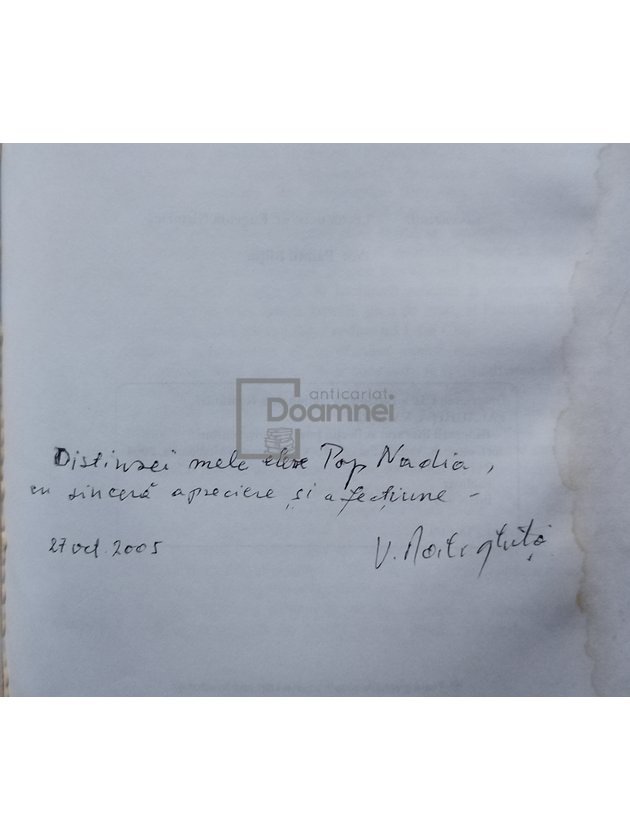 anticariat
Doamnei
Distinsei mele eleve Pop Nadia,
cu sinceră apreciere și afecțiune –
27 oct. 2005
V.